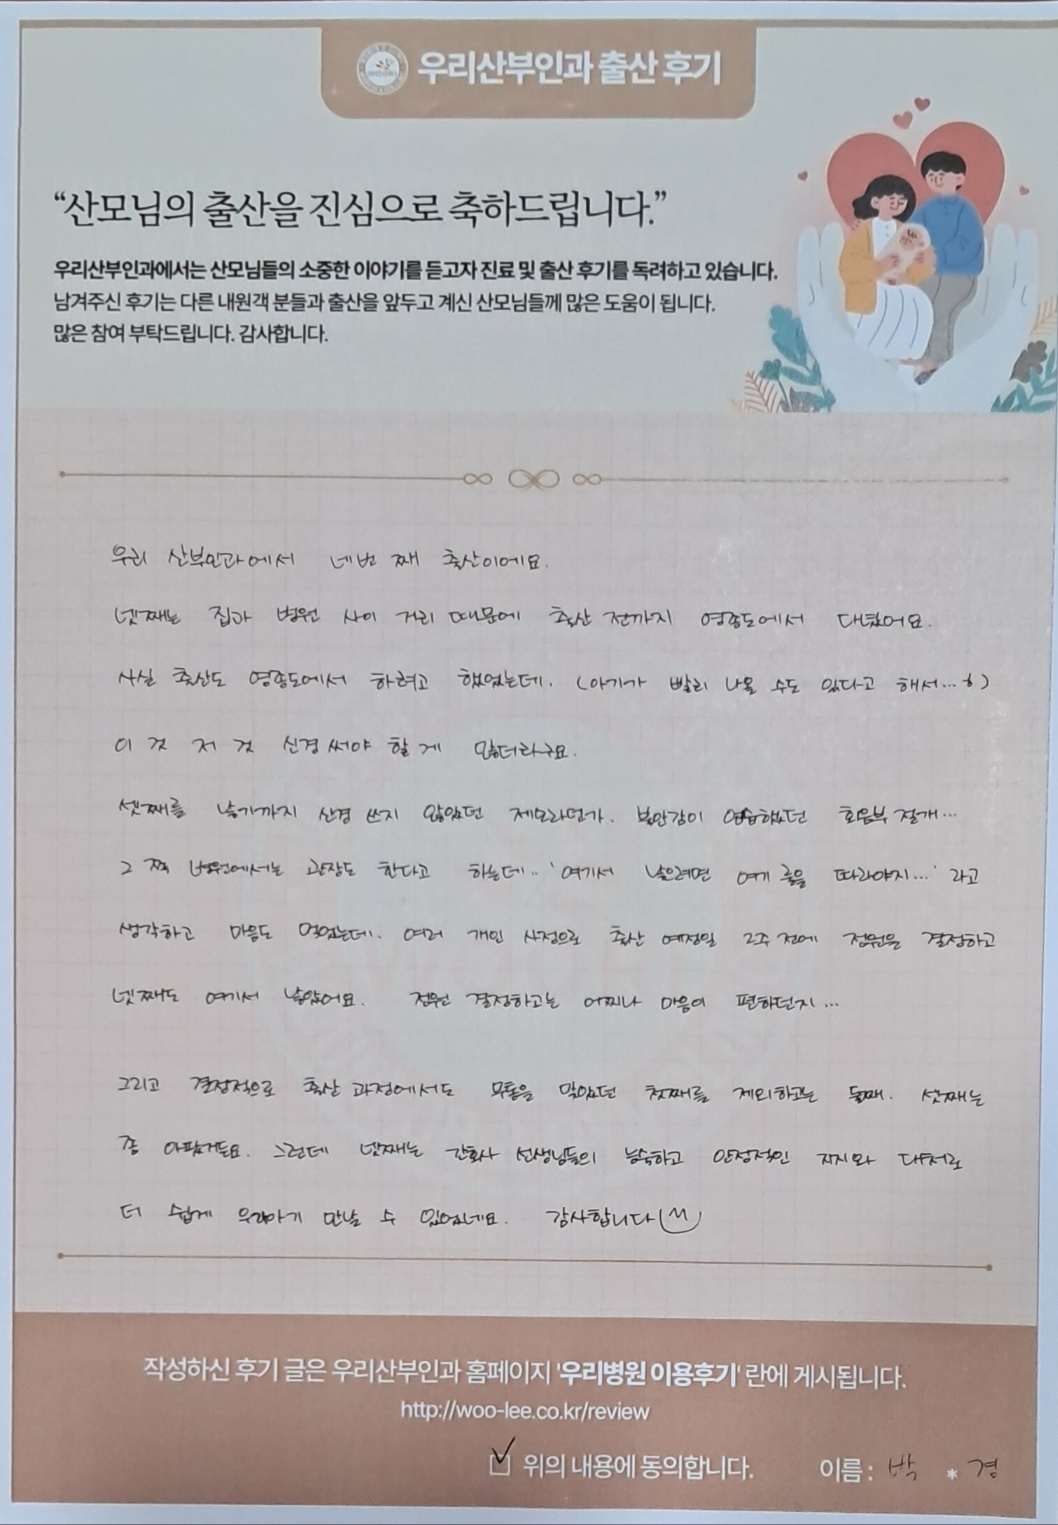 우리산부인과 출산 후기
“산모님의 출산을 진심으로 축하드립니다.”
우리산부인과에서는 산모님들의 소중한 이야기를 듣고자 진료 및 출산 후기를 독려하고 있습니다.
남겨주신 후기는 다른 내원객 분들과 출산을 앞두고 계신 산모님들께 많은 도움이 됩니다.
많은 참여 부탁드립니다. 감사합니다.
우리 산부인과에서 네번 째 출산이에요.
넷째는 집과 병원 사이 거리 때문에 출산 전까지 영종도에서 다녔어요.
사실 출산도 영종도에서 하려고 했었는데. (아기가 빨리 나올 수도 있다고 해서...ㅎ)
이 것 저 것 신경써야 할 게 많더라구요.
셋째를 낳기까지 신경 쓰지 않았던 제모라던가. 불안감이 엄습했던 회음부 절개...
그 쪽 병원에서는 관장도 한다고 하는데.. '여기서 낳으려면 여기 룰을 따라야지...' 라고
생각하고 마음도 먹었는데. 여러 개인 사정으로 출산 예정일 2주 전에 전원을 결정하고
넷째도 여기서 낳았어요. 전원 결정하고는 어찌나 마음이 편하던지...
그리고 결정적으로 출산 과정에서도 무통을 맞았던 첫째를 제외하고는 둘째. 셋째는
좀 아팠거든요. 그런데 넷째는 간호사 선생님들의 능숙하고 안정적인 지지와 대처로
더 쉽게 우리아기 만날 수 있었네요. 감사합니다(^^)
작성하신 후기 글은 우리산부인과 홈페이지 '우리병원 이용후기' 란에 게시됩니다.
http://woo-lee.co.kr/review
위의 내용에 동의합니다. 이름 : 박 * 경